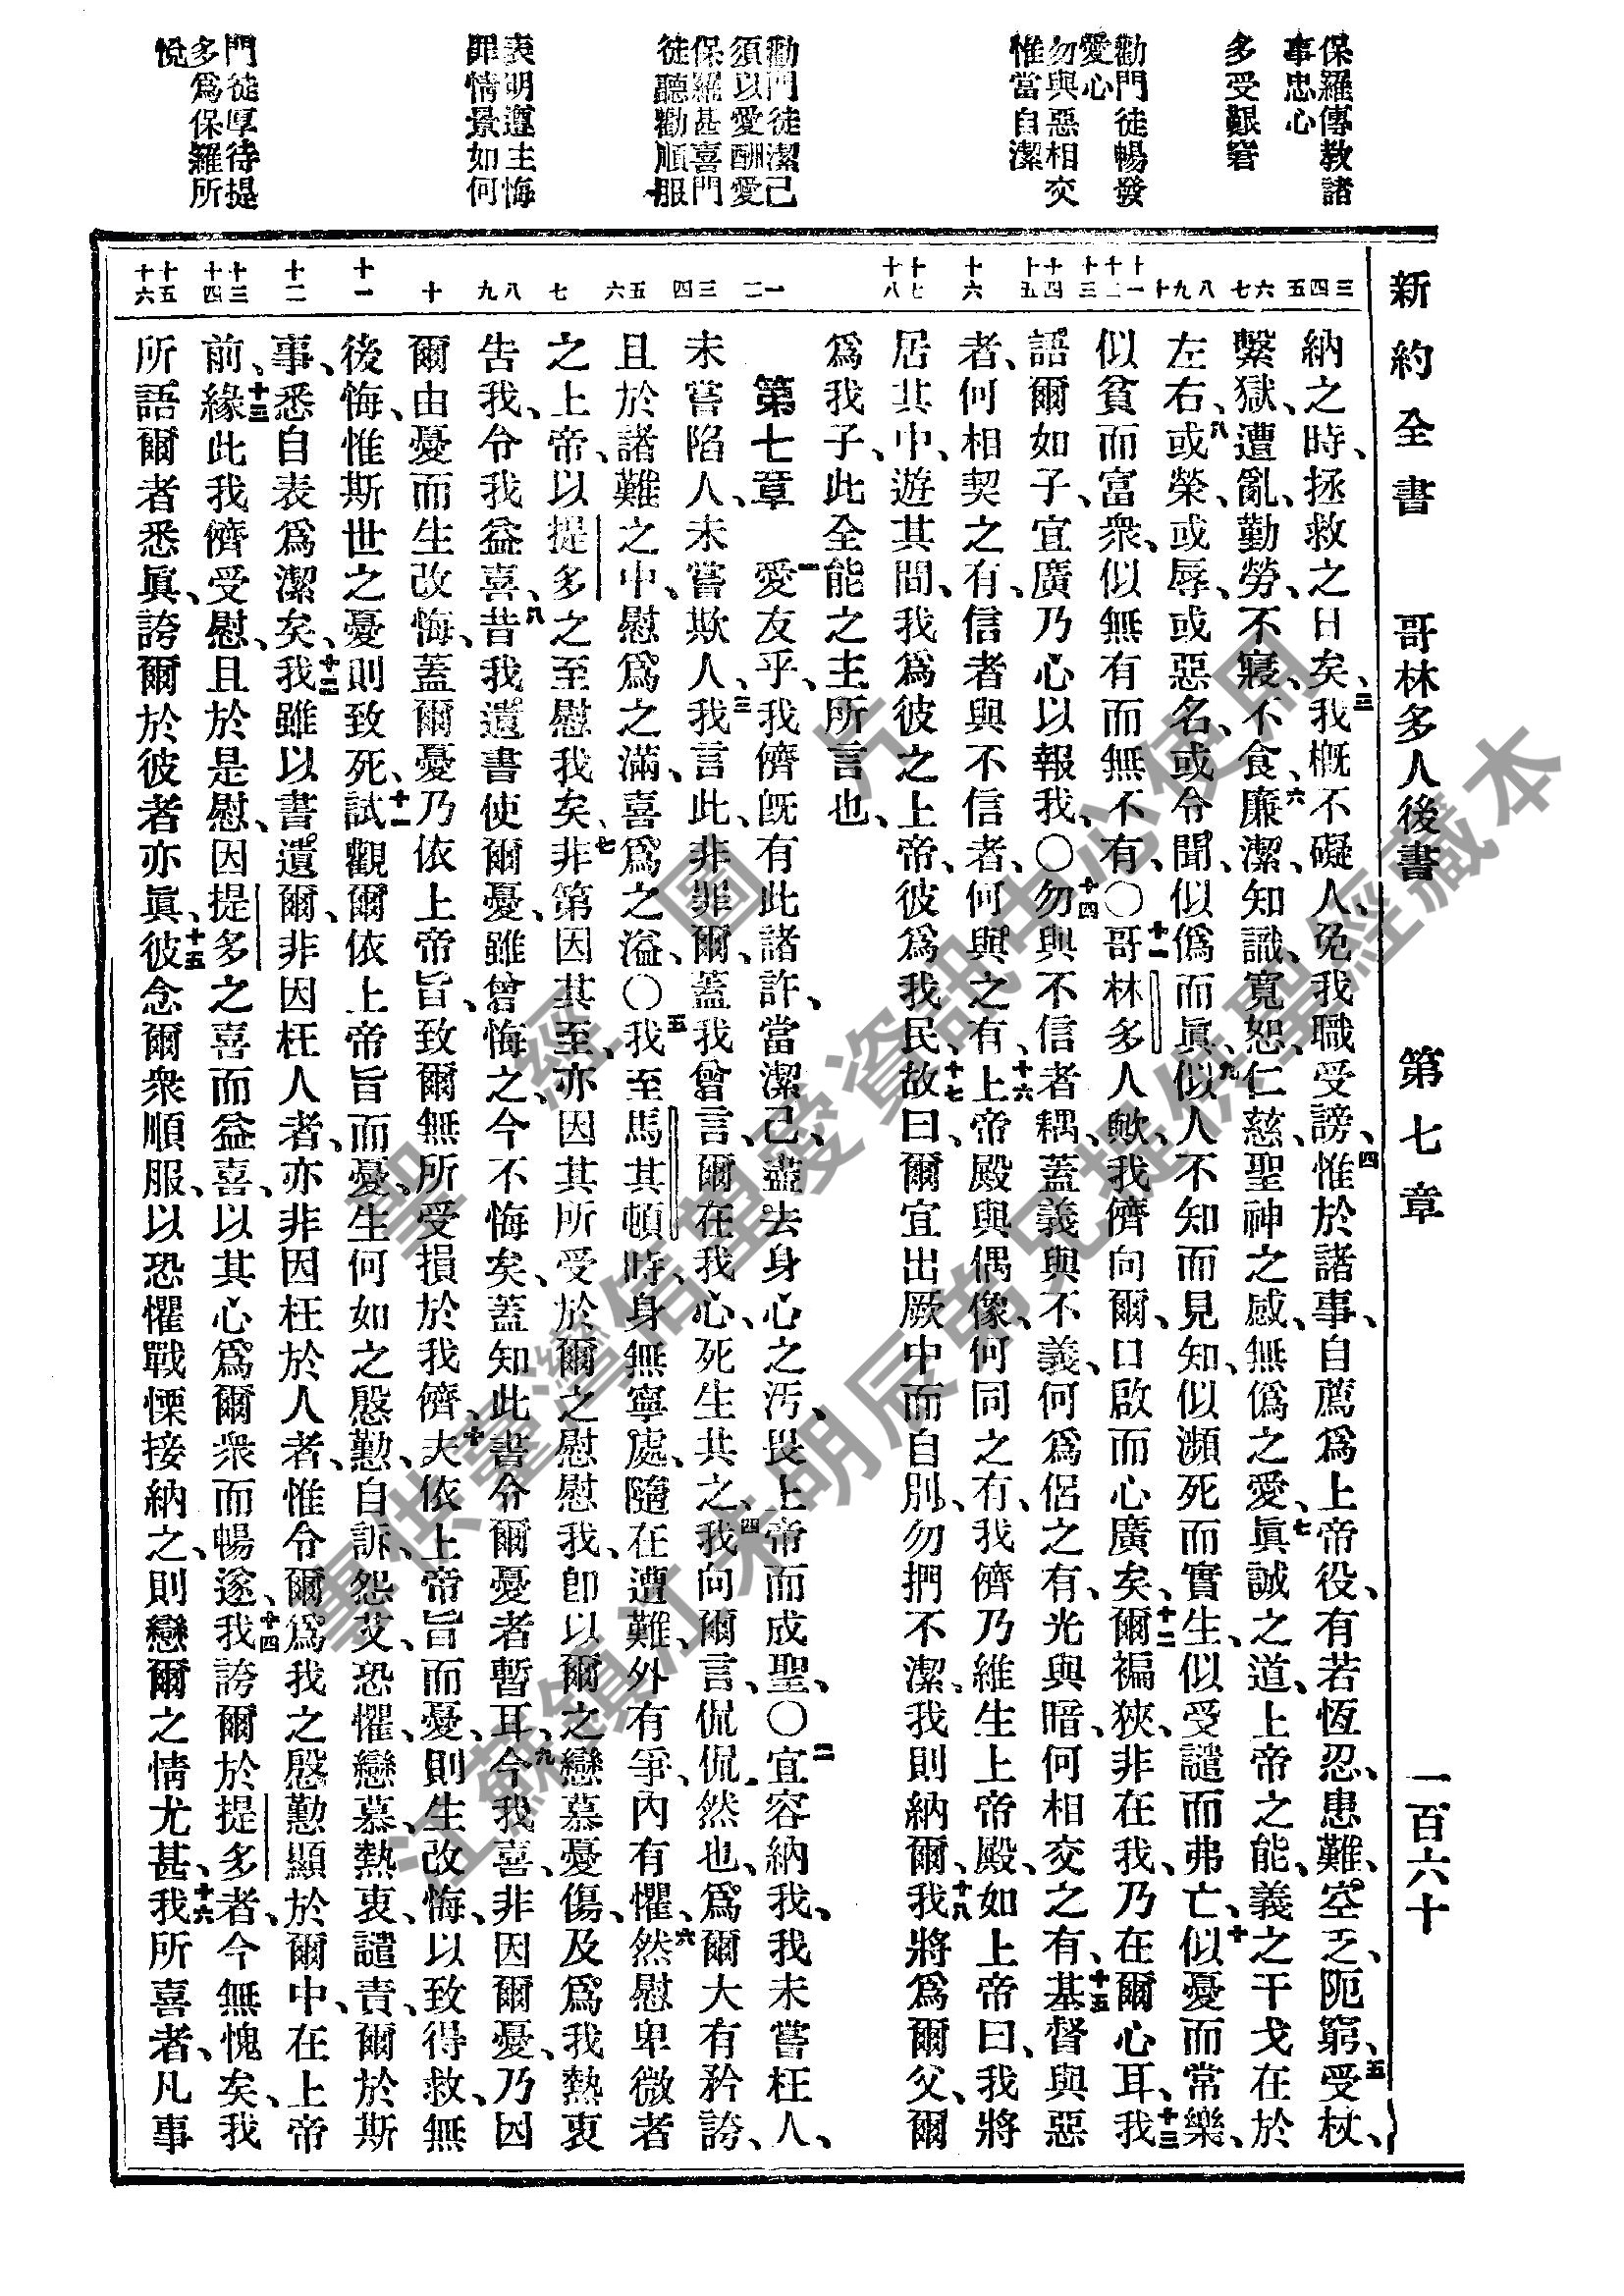 新約全書　哥林多人後書　第七章　一百六十
保羅傳教諸
事忠心
多受艱窘
勸門徒暢發
愛心
勿與惡相交
惟當自潔
勸門徒潔己
須以愛酬愛
保羅甚喜門
徒聽勸順服
表明遵主悔
罪情景如何
門徒厚待提
多爲保羅所
悅
三 四 五 六 七 八 九 十 十一 十二 十三 十四 十五 十六 十七 十八 一 二 三 四 五 六 七 八 九 十 十一 十二 十三 十四 十五 十六
納之時、拯救之日矣、三我槪不礙人、免我職受謗、四惟於諸事、自薦爲上帝役、有若恆忍、患難、空乏、阨窮、五受杖、
繫獄、遭亂、勤勞、不寢、不食、六廉潔、知識、寬恕、仁慈、聖神之感、無僞之愛、七眞誠之道、上帝之能、義之干戈在於
左右、八或榮、或辱、或惡名、或令聞、似僞而眞、九似人不知而見知、似瀕死而實生、似受譴而弗亡、十似憂而常樂、
似貧而富衆、似無有而無不有、〇十一哥林多人歟、我儕向爾、口啟而心廣矣、十二爾褊狹、非在我、乃在爾心耳、十三我
語爾如子、宜廣乃心以報我、〇十四勿與不信者耦、蓋義與不義、何爲侶之有、光與暗、何相交之有、十五基督與惡
者、何相契之有、信者與不信者、何與之有、十六上帝殿與偶像、何同之有、我儕乃維生上帝殿、如上帝曰、我將
居其中、遊其間、我爲彼之上帝、彼爲我民、十七故曰、爾宜出厥中而自別、勿捫不潔、我則納爾、十八我將爲爾父、爾
爲我子、此全能之主所言也、
第七章　一愛友乎、我儕旣有此諸許、當潔己、盡去身心之汚、畏上帝而成聖、〇二宜容納我、我未嘗枉人、
未嘗陷人、未嘗欺人、三我言此、非罪爾、蓋我曾言、爾在我心、死生共之、四我向爾言、侃侃然也、爲爾大有矜誇、
且於諸難之中、慰爲之滿、喜爲之溢、〇五我至馬其頓時、身無寧處、隨在遭難、外有爭、內有懼、六然慰卑微者
之上帝、以提多之至慰我矣、七非第因其至、亦因其所受於爾之慰慰我、卽以爾之戀慕憂傷、及爲我熱衷
告我、令我益喜、八昔我遺書使爾憂、雖曾悔之、今不悔矣、蓋知此書令爾憂者暫耳、九今我喜、非因爾憂、乃因
爾由憂而生改悔、蓋爾憂乃依上帝旨、致爾無所受損於我儕、十夫依上帝旨而憂、則生改悔、以致得救、無
後悔、惟斯世之憂則致死、十一試觀爾依上帝旨而憂、生何如之慇懃、自訴、怨艾、恐懼、戀慕、熱衷、譴責、爾於斯
事、悉自表爲潔矣、十二我雖以書遺爾、非因枉人者、亦非因枉於人者、惟令爾爲我之慇懃顯於爾中、在上帝
前、十三緣此我儕受慰、且於是慰、因提多之喜而益喜、以其心爲爾衆而暢遂、十四我誇爾於提多者、今無愧矣、我
所語爾者悉眞、誇爾於彼者亦眞、十五彼念爾衆順服、以恐懼戰慄接納之、則戀爾之情尤甚、十六我所喜者、凡事
聖經圖片
專供臺灣信望愛資訊中心使用
江蘇鎮江朱明辰弟兄提供聖經藏本